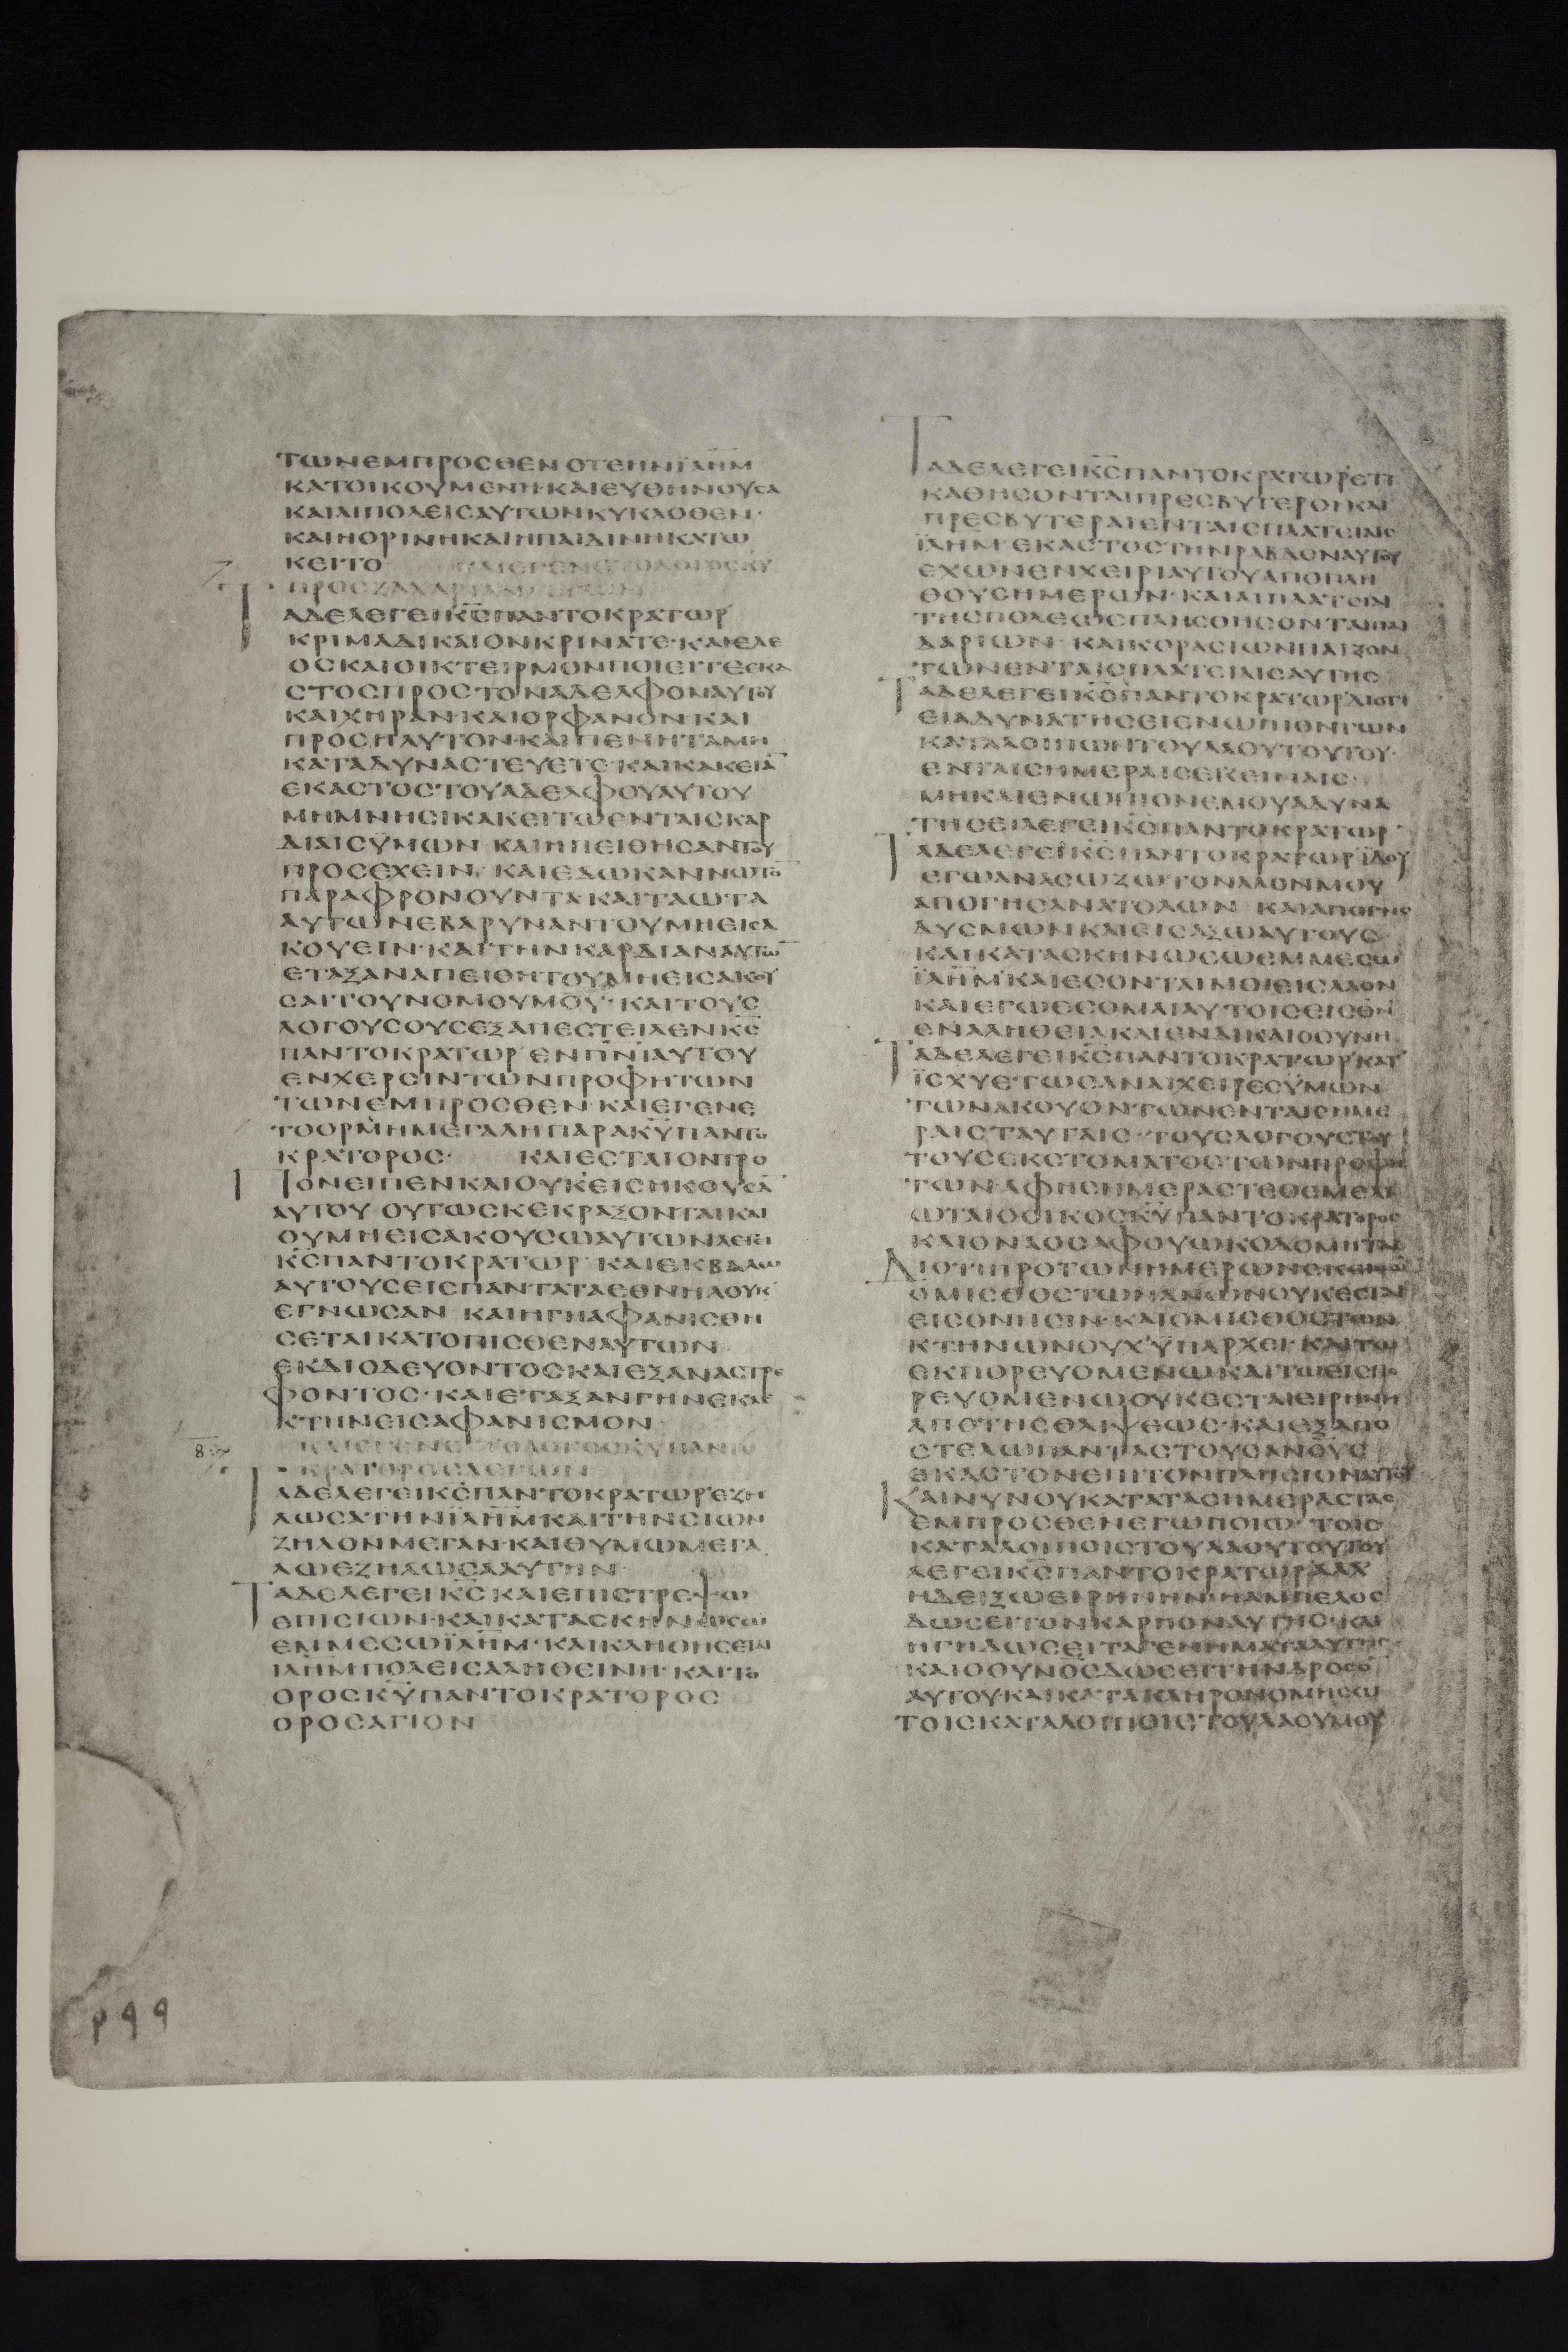 ΤΩΝΕΜΠΡΟСΘΕΝΟΤΕΗΝΪΛΗΜ
ΚΑΤΟΙΚΟΥΜΕΝΗ·ΚΑΙΕΥΘΗΝΟΥСΑ
ΚΑΙΑΙΠΟΛΕΙСΑΥΤΩΝΚΥΚΛΟΘΕΝ·
ΚΑΙΗΟΡΙΝΗΚΑΙΗΠΑΙΔΙΝΗΚΑΤΩ
ΚΕΙΤΟ ΚΑΙΕΓΕΝΕΤΟΛΟΓΟСΚΥ
ΠΡΟСΖΑΧΑΡΙΑΝΛΕΓΩΝ
7
ΤΑΔΕΛΕΓΕΙΚ̅С̅ΠΑΝΤΟΚΡΑΤΩΡ
ΚΡΙΜΑΔΙΚΑΙΟΝΚΡΙΝΑΤΕ·ΚΑΙΕΛΕ
ΟСΚΑΙΟΙΚΤΕΙΡΜΟΝΠΟΙΕΙΤΕΕΚΑ
СΤΟСΠΡΟСΤΟΝΑΔΕΛΦΟΝΑΥΤΟΥ
ΚΑΙΧΗΡΑΝ·ΚΑΙΟΡΦΑΝΟΝ·ΚΑΙ
ΠΡΟСΗΛΥΤΟΝ·ΚΑΙΠΕΝΗΤΑΜΗ
ΚΑΤΑΔΥΝΑСΤΕΥΕΤΕ·ΚΑΙΚΑΚΕΙΑ̅
ΕΚΑСΤΟСΤΟΥΑΔΕΛΦΟΥΑΥΤΟΥ
ΜΗΜΝΗСΙΚΑΚΕΙΤΩΕΝΤΑΙСΚΑΡ
ΔΙΑΙСΫΜΩΝ ΚΑΙΗΠΕΙΘΗСΑΝΤΟΥ
ΠΡΟСΕΧΕΙΝ· ΚΑΙΕΔΩΚΑΝΝΩΤΟ̅
ΠΑΡΑΦΡΟΝΟΥΝΤΑ·ΚΑΙΤΑΩΤΑ
ΑΥΤΩΝΕΒΑΡΥΝΑΝΤΟΥΜΗΕΙСΑ
ΚΟΥΕΙΝ·ΚΑΙΤΗΝΚΑΡΔΙΑΝΑΥΤΩ̅
ΕΤΑΞΑΝΑΠΕΙΘΗΤΟΥΜΗΕΙСΑΚΟΥ
СΑΙΤΟΥΝΟΜΟΥΜΟΥ·ΚΑΙΤΟΥС
ΛΟΓΟΥСΟΥСΕΞΑΠΕСΤΕΙΛΕΝΚ̅С̅
ΠΑΝΤΟΚΡΑΤΩΡ ΕΝΠ̅Ν̅Ι̅ΑΥΤΟΥ
ΕΝΧΕΡСΙΝΤΩΝΠΡΟΦΗΤΩΝ
ΤΩΝΕΜΠΡΟСΘΕΝ·ΚΑΙΕΓΕΝΕ
ΤΟΟΡΜΗΜΕΓΑΛΗΠΑΡΑΚ̅Υ̅ΠΑΝΤΟ
ΚΡΑΤΟΡΟС· ΚΑΙΕСΤΑΙΟΝΤΡΟ
ΠΟΝΕΙΠΕΝΚΑΙΟΥΚΕΙСΗΚΟΥСΑ̅
ΑΥΤΟΥ ΟΥΤΩСΚΕΚΡΑΞΟΝΤΑΙΚΑΙ
ΟΥΜΗΕΙСΑΚΟΥСΩΑΥΤΩΝΛΕΓΕΙ
Κ̅С̅ΠΑΝΤΟΚΡΑΤΩΡ ΚΑΙΕΚΒΑΛΩ
ΑΥΤΟΥСΕΙСΠΑΝΤΑΤΑΕΘΝΗΑΟΥΚ
ΕΓΝΩСΑΝ ΚΑΙΗΓΗΑΦΑΝΙСΘΗ
СΕΤΑΙΚΑΤΟΠΙСΘΕΝΑΥΤΩΝ
ΕΚΔΙΟΔΕΥΟΝΤΟСΚΑΙΕΞΑΝΑСΤΡΕ
ΦΟΝΤΟС·ΚΑΙΕΤΑΞΑΝΓΗΝΕΚΛΕ
ΚΤΗΝΕΙСΑΦΑΝΙСΜΟΝ·
ΚΑΙΕΓΕΝΕΤΟΛΟΓΟСΚΥΠΑΝΤΟ
ΚΡΑΤΟΡΟСΛΕΓΩΝ
8
ΤΑΔΕΛΕΓΕΙΚ̅С̅ΠΑΝΤΟΚΡΑΤΩΡΕΖΗ
ΛΩСΑΤΗΝΪΛΗΜΚΑΙΤΗΝСΙΩΝ
ΖΗΛΟΝΜΕΓΑΝ·ΚΑΙΘΥΜΩΜΕΓΑ
ΛΩΕΖΗΛΩСΑΑΥΤΗΝ
ΤΑΔΕΛΕΓΕΙΚ̅С̅ΚΑΙΕΠΙСΤΡΕΨΩ
ΕΠΙСΙΩΝ·ΚΑΙΚΑΤΑСΚΗΝΩСΩ
ΕΜΜΕСΩΪΛΗΜ·ΚΑΙΚΛΗΘΗСΕΤΑΙ
ΙΛΗΜΠΟΛΕΙСΑΛΗΘΕΙΝΗ·ΚΑΙΤΟ
ΟΡΟСΚ̅Υ̅ΠΑΝΤΟΚΡΑΤΟΡΟС
ΟΡΟСΑΓΙΟΝ
ΤΑΔΕΛΕΓΕΙΚ̅С̅ΠΑΝΤΟΚΡΑΤΩΡΕΤΙ
ΚΑΘΗСΟΝΤΑΙΠΡΕСΒΥΤΕΡΟΙΚΑΙ
ΠΡΕСΒΥΤΕΡΑΙΕΝΤΑΙСΠΛΑΤΕΙΑΙС
ΪΛΗΜ·ΕΚΑСΤΟСΤΗΝΡΑΒΔΟΝΑΥΤΟΥ
ΕΧΩΝΕΝΧΕΙΡΙΑΥΤΟΥΑΠΟΠΛΗ
ΘΟΥСΗΜΕΡΩΝ·ΚΑΙΑΙΠΛΑΤΕΙΑΙ
ΤΗСΠΟΛΕΩСΠΛΗСΘΗСΟΝΤΑΙΠΑΙ
ΔΑΡΙΩΝ ΚΑΙΚΟΡΑСΙΩΝΠΑΙΖΟΝ
ΤΩΝΕΝΤΑΙСΠΛΑΤΕΙΑΙСΑΥΤΗС
ΤΑΔΕΛΕΓΕΙΚ̅С̅ΠΑΝΤΟΚΡΑΤΩΡΔΙΟΤΙ
ΕΙΑΔΥΝΑΤΗСΕΙΕΝΩΠΙΟΝΤΩΝ
ΚΑΤΑΛΟΙΠΩΝΤΟΥΛΑΟΥΤΟΥΤΟΥ·
ΕΝΤΑΙСΗΜΕΡΑΙСΕΚΕΙΝΑΙС·
ΜΗΚΑΙΕΝΩΠΙΟΝΕΜΟΥΑΔΥΝΑ
ΤΗСΕΙΛΕΓΕΙΚ̅С̅ΠΑΝΤΟΚΡΑΤΩΡ·
ΤΑΔΕΛΕΓΕΙΚ̅С̅ΠΑΝΤΟΚΡΑΤΩΡΪΔΟΥ
ΕΓΩΑΝΑСΩΖΩΤΟΝΛΑΟΝΜΟΥ
ΑΠΟΓΗСΑΝΑΤΟΛΩΝ ΚΑΙΑΠΟΓΗС
ΔΥСΜΩΝΚΑΙΕΙСΑΞΩΑΥΤΟΥС
ΚΑΙΚΑΤΑСΚΗΝΩСΩΕΜΜΕСΩ
ΪΛΗΜ·ΚΑΙΕСΟΝΤΑΙΜΟΙΕΙСΛΑΟΝ
ΚΑΙΕΓΩΕСΟΜΑΙΑΥΤΟΙСΕΙСΘ̅Ν̅
ΕΝΑΛΗΘΕΙΑΚΑΙΕΝΔΙΚΑΙΟСΥΝΗ
ΤΑΔΕΛΕΓΕΙΚ̅С̅ΠΑΝΤΟΚΡΑΤΩΡΚΑΤ
ΪСΧΥΕΤΩСΑΝΑΙΧΕΙΡΕСΫΜΩΝ
ΤΩΝΑΚΟΥΟΝΤΩΝΕΝΤΑΙСΗΜΕ
ΡΑΙСΤΑΥΤΑΙС·ΤΟΥСΛΟΓΟΥСΤΟΥ
ΤΟΥСΕΚСΤΟΜΑΤΟСΤΩΝΠΡΟΦΗ
ΤΩΝ·ΑΦΗСΗΜΕΡΑСΤΕΘΕΜΕΛΙ
ΩΤΑΙΟΟΙΚΟСΚ̅Υ̅ΠΑΝΤΟΚΡΑΤΟΡΟС
ΚΑΙΟΝΑΟСΑΦΟΥΩΚΟΔΟΜΗΤΑΙ
ΔΙΟΤΙΠΡΟΤΩΝΗΜΕΡΩΝΕΚΕΙΝΩ̅
ΟΜΙСΘΟСΤΩΝΑΝ̅Ω̅Ν̅ΟΥΚΕСΤΑΙ
ΕΙСΟΝΗСΙΝ·ΚΑΙΟΜΙСΘΟСΤΩΝ
ΚΤΗΝΩΝΟΥΧΫΠΑΡΧΕΙ·ΚΑΙΤΩ
ΕΚΠΟΡΕΥΟΜΕΝΩΚΑΙΤΩΕΙСΠΟ
ΡΕΥΟΜΕΝΩΟΥΚΕСΤΑΙΕΙΡΗΝΗ
ΑΠΟΤΗСΘΛΙΨΕΩС·ΚΑΙΕΞΑΠΟ
СΤΕΛΩΠΑΝΤΑСΤΟΥСΑΝ̅Ο̅Υ̅С̅
ΕΚΑСΤΟΝΕΠΙΤΟΝΠΛΗСΙΟΝΑΥΤΟΥ
ΚΑΙΝΥΝΟΥΚΑΤΑΤΑСΗΜΕΡΑСΤΑС
ΕΜΠΡΟСΘΕΝΕΓΩΠΟΙΩ·ΤΟΙС
ΚΑΤΑΛΟΙΠΟΙСΤΟΥΛΑΟΥΤΟΥΤΟΥ
ΛΕΓΕΙΚ̅С̅ΠΑΝΤΟΚΡΑΤΩΡΑΛΛ
ΗΔΕΙΞΩΕΙΡΗΝΗΝ·ΗΑΜΠΕΛΟС
ΔΩСΕΙΤΟΝΚΑΡΠΟΝΑΥΤΗС·ΚΑΙ
ΗΓΗΔΩСΕΙΤΑΓΕΝΗΜΑΤΑΑΥΤΗС·
ΚΑΙΟΟΥΝΟСΔΩСΕΙΤΗΝΔΡΟСΟ̅
ΑΥΤΟΥΚΑΙΚΑΤΑΚΛΗΡΟΝΟΜΗСΩ
ΤΟΙСΚΑΤΑΛΟΙΠΟΙСΤΟΥΛΑΟΥΜΟΥ